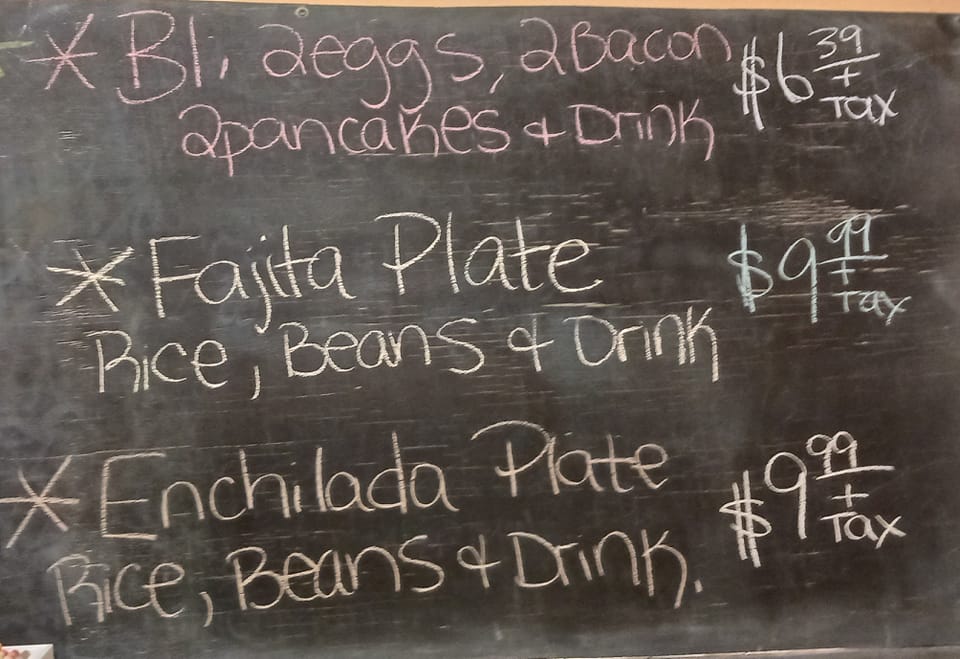 * B1, 2eggs, 2Bacon $6 39 + Tax
2pancakes & Drink
* Fajita Plate $9 99 + Tax
Rice, Beans & Drink
* Enchilada Plate $9 99 + Tax
Rice, Beans & Drink.